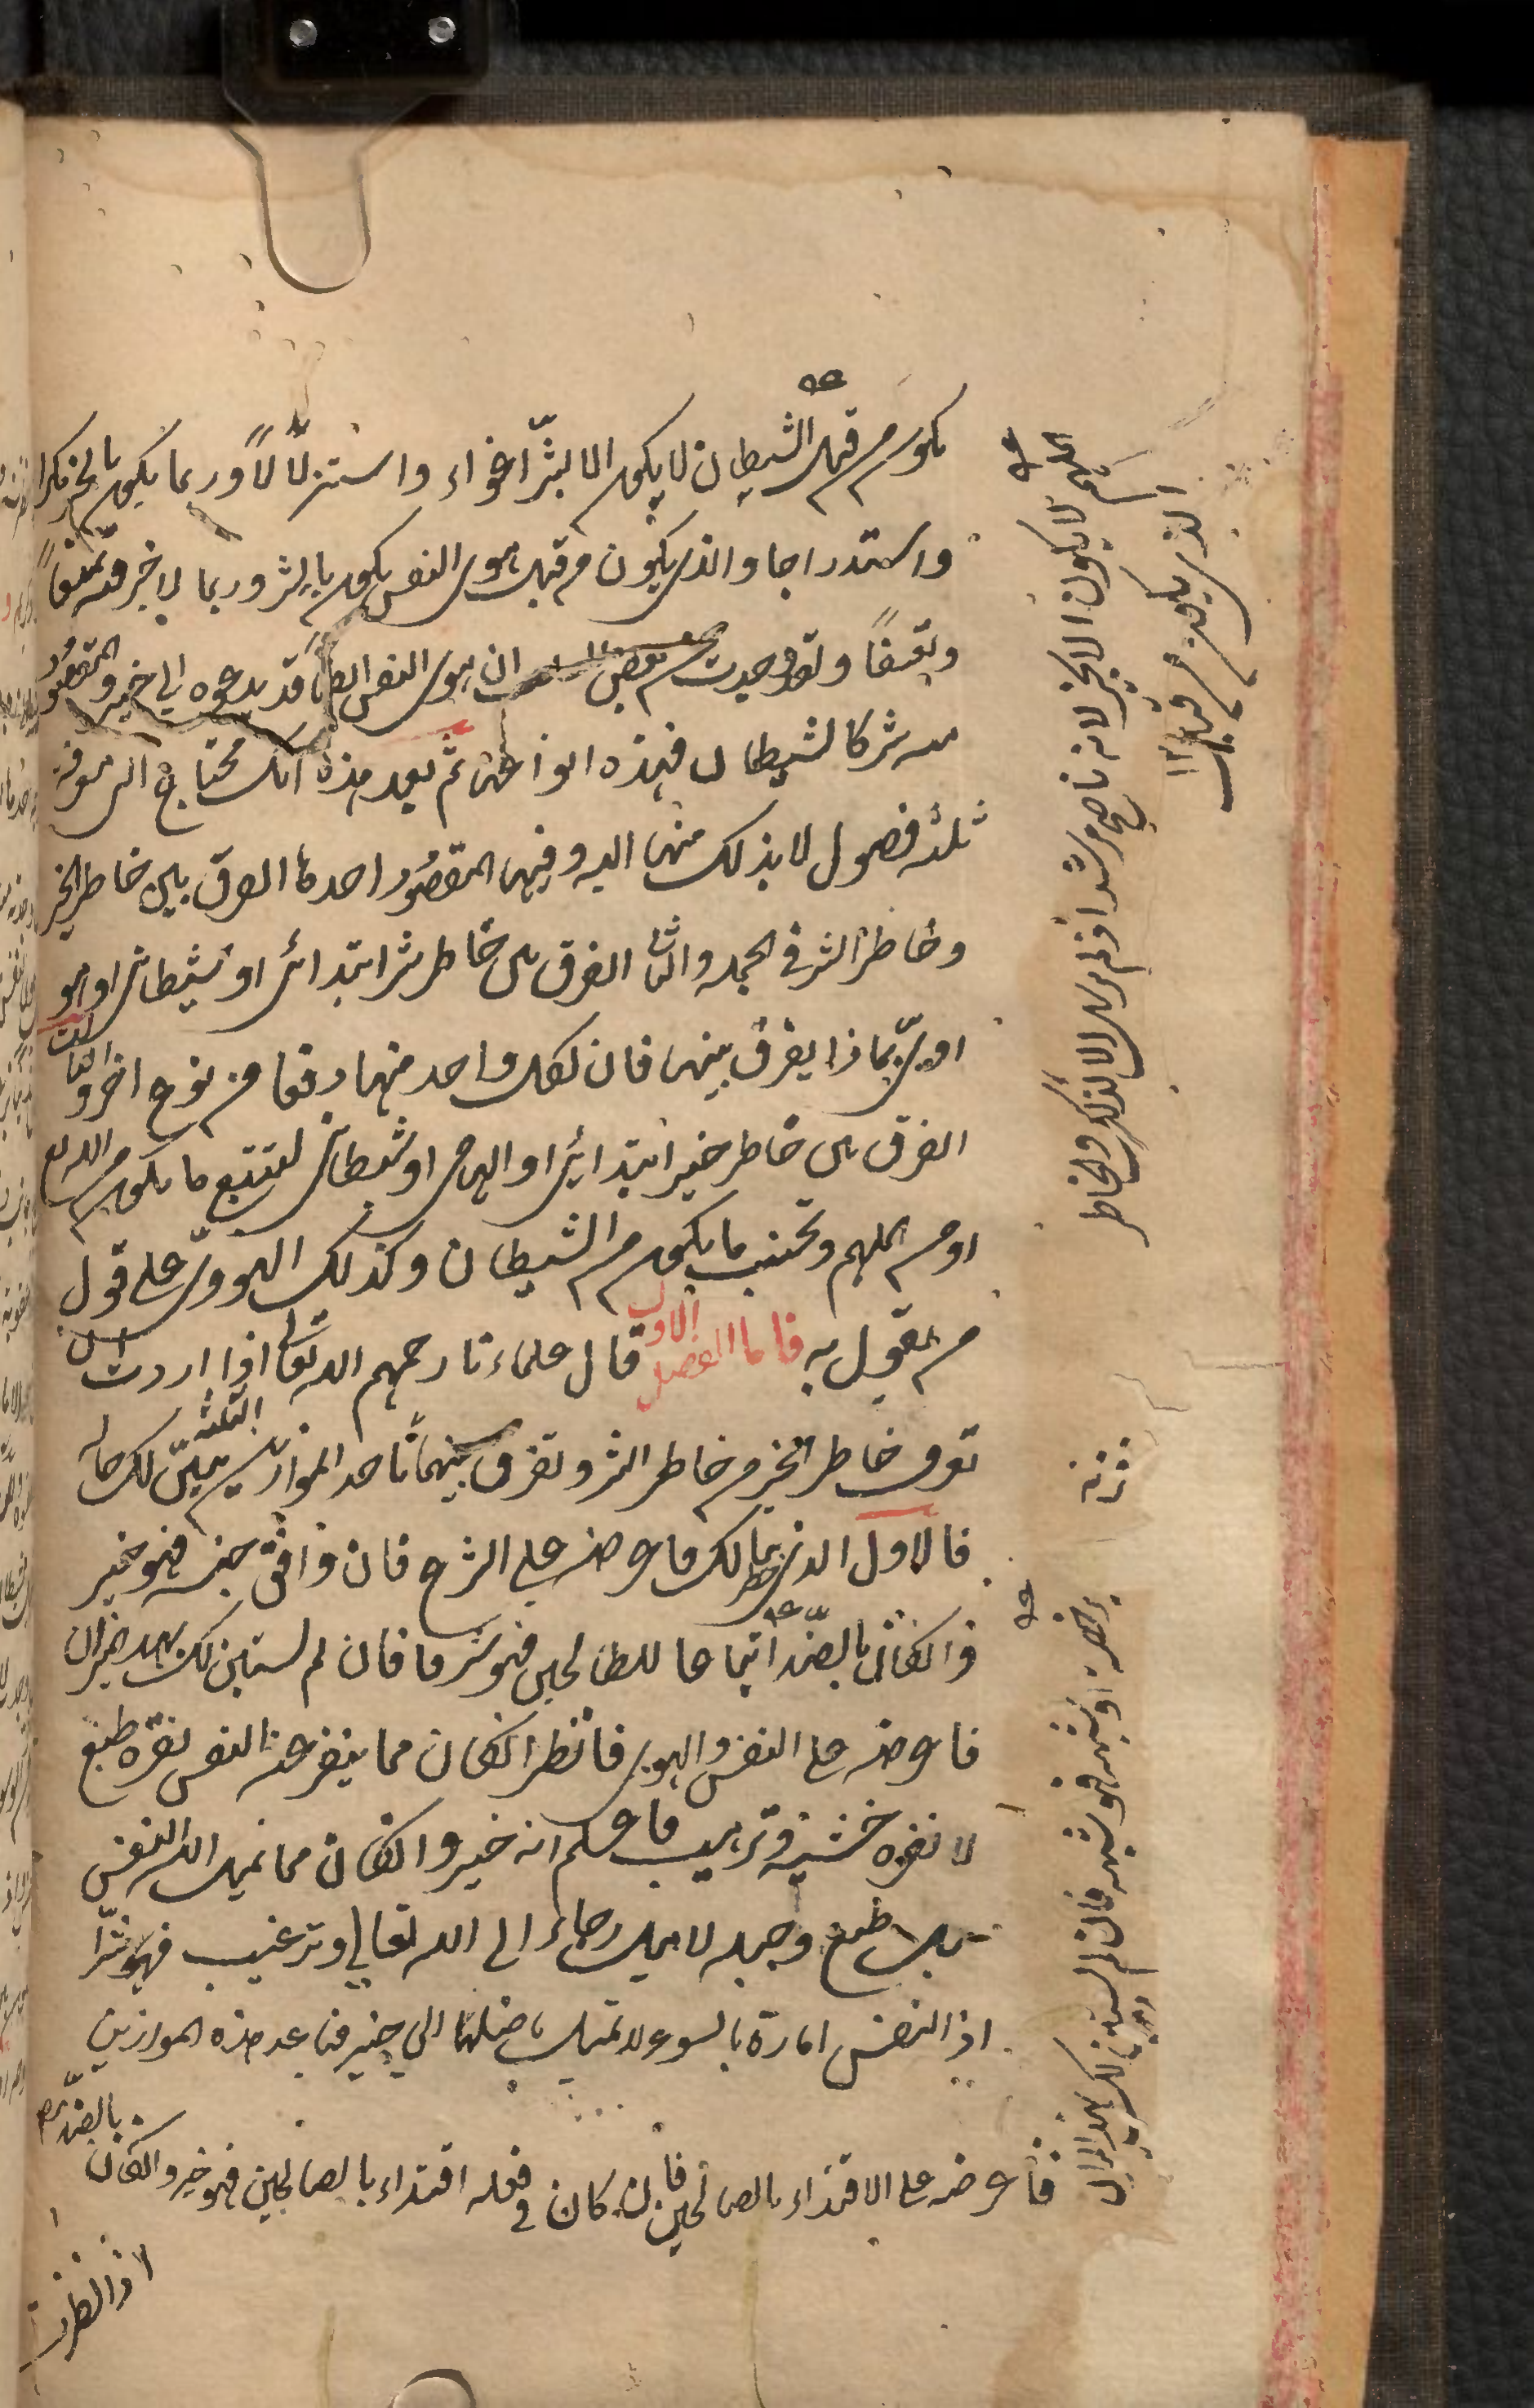 يكون من قبل الشيطان لا يكون الا بشرّ اغواء واستزلالاً وربما يكون بالخير مكرا
واستدراجا والذي يكون من قبل هوى النفس يكون بالشر وربما لا خير فيه تمنعاً
وتعسفاً ولقد وجدت عن بعض ان هوى النفس ايضاً قد يدعوه الى خير والمقصود
منه شر كالشيطان فهذه انواعها ثم بعد هذه انك محتاج الى معرفة
ثلثه فصول لا بد لك منها البه وفيها المقصود احدها الفرق بين خاطر الخير
وخاطر الشر في الجمله والثانى الفرق بين خاطر شر ابتدائى او شيطانى او هو
اوىّ بماذا يفرق بينها فان لكل واحد منها دفعا من نوع اخر والثالث
الفرق بين خاطر خير ابتدائى او الهامى او شيطانى لتتبع ما يكون من الله تع
او من الملهم وتجتنب ما يكون من الشيطان وكذلك الهووىّ على قول
من يقول به فاما الفصل الاول قال علماءنا رحمهم الله تعالى اذا اردت ان
تعرف خاطر الخير من خاطر الشر وتفرق بينهما فباحد الموازين الثلثه يتبيّن لك حاله
فالاول الذى خطر ببالك فاعرضه على الشرع فان وافق جنسه فهو خير
وان كان بالضدّ اتباعا للطالحين فهو شر فان لم يستبن لك بهذ الميزان
فاعرضه على النفس والهوى فانظر ان كان مما ينفر عنه النفس نفرة طبع
لا نفرة خشية وترهيب فاعلم انه خير وان كان مما تميل اليه النفس
ميل طبع وجبله لا ميل رجاء الى الله تعالى وترغيب فهو شرّ
اذ النفس امارة بالسوء لا تميل باصلها الى خير فباحد هذه الموازين
فأعرضه على الاقتداء بالصالحين فان كان في فعله اقتداء بالصالحين فهو خير وان كان بالضدّ
اذا نظرت
الذى يكون من قبل
الملهم لا يكون الا بخير لانه ناصح مرشد اذ لم يرسل الا لذلك والخاطر
برخصة او شبهه فهو شبهه فان لم يستبن لك بهذا الميزان